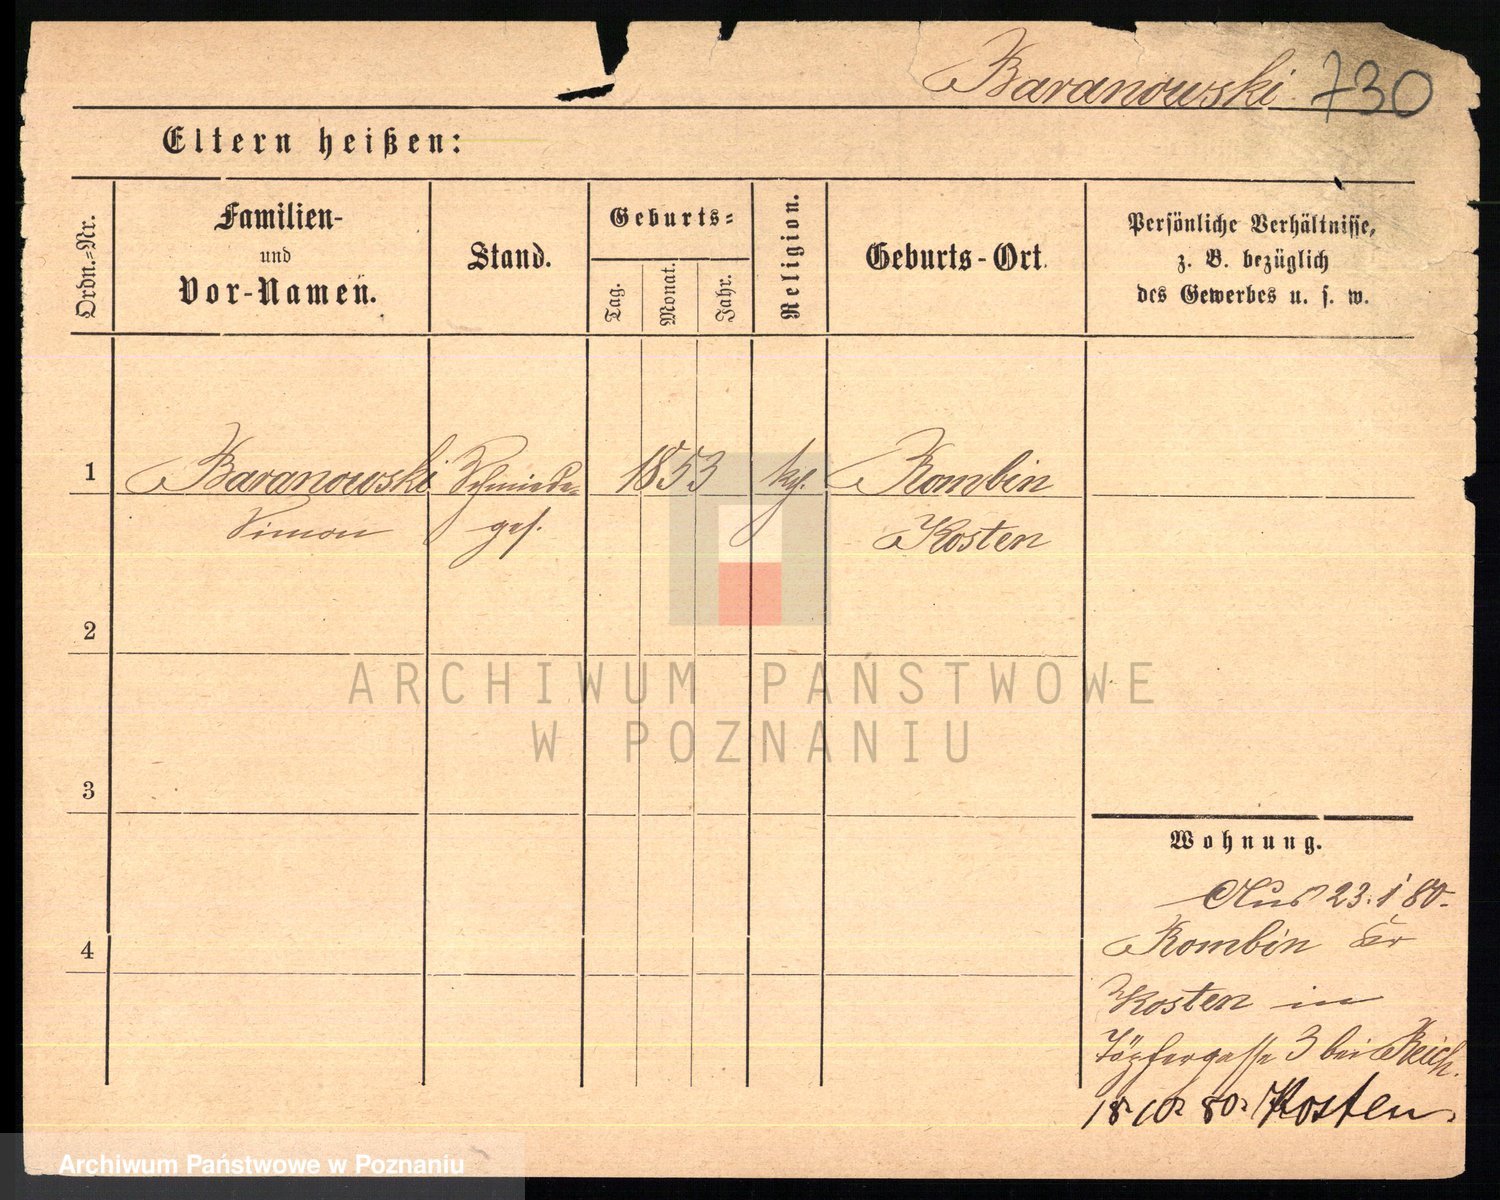 Baranowski 730
Eltern heißen:
Ordn.=Nr.
Familien-
und
Vor-Namen.
Stand.
Geburts=
Tag.
Monat.
Jahr.
Religion.
Geburts-Ort.
Persönliche Verhältnisse,
z. B. bezüglich
des Gewerbes u. s. w.
1 Baranowski Schmiede= 1853 kth. Rombin
Simon ges. Kosten
2
ARCHIWUM PAŃSTWOWE
W POZNANIU
3
Wohnung.
Aus 23. 1 80.
4
Rombin Kr
Kosten in
Töpfergasse 3 bei Reich.
18. 10. 80. Kosten.
Archiwum Państwowe w Poznaniu